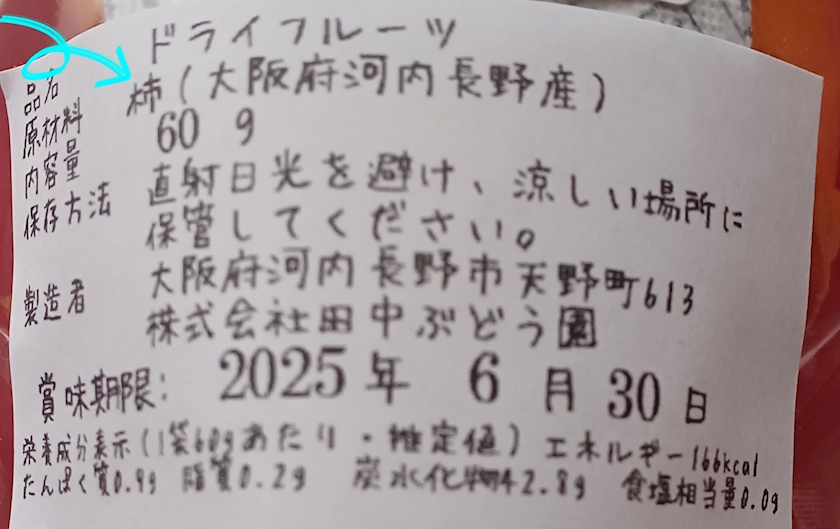 品名 ドライフルーツ
原材料 柿(大阪府河内長野産)
内容量 60 g
保存方法 直射日光を避け、涼しい場所に
保管してください。
製造者 大阪府河内長野市天野町613
株式会社田中ぶどう園
賞味期限: 2025年 6月30日
栄養成分表示(1袋60gあたり・推定値) エネルギー166kcal
たんぱく質0.9g 脂質0.2g 炭水化物42.8g 食塩相当量0.0g